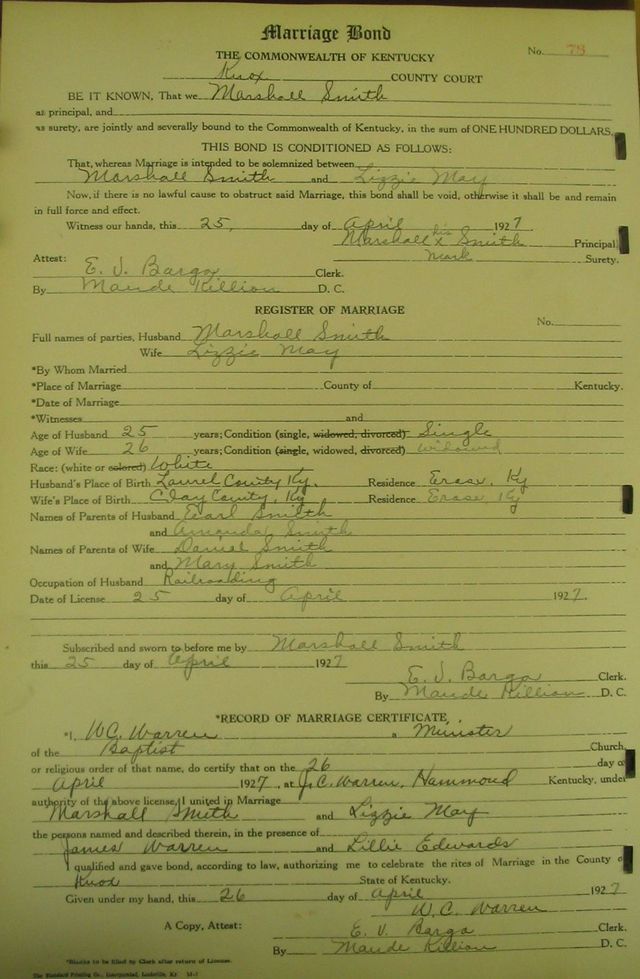 Marriage Bond
No. 78
THE COMMONWEALTH OF KENTUCKY
Knox COUNTY COURT
BE IT KNOWN, That we Marshall Smith
as principal, and
as surety, are jointly and severally bound to the Commonwealth of Kentucky, in the sum of ONE HUNDRED DOLLARS.
THIS BOND IS CONDITIONED AS FOLLOWS:
That, whereas Marriage is intended to be solemnized between
Marshall Smith and Lizzie May
Now, if there is no lawful cause to obstruct said Marriage, this bond shall be void, otherwise it shall be and remain
in full force and effect.
Witness our hands, this 25, day of April 1927
Marshall his x mark Smith Principal
Attest: Surety.
E. V. Barga Clerk.
By Maude Killion D. C.
REGISTER OF MARRIAGE
No.
Full names of parties, Husband Marshall Smith
Wife Lizzie May
*By Whom Married
*Place of Marriage County of Kentucky.
*Date of Marriage
*Witnesses and
Age of Husband 25 years; Condition (single, widowed, divorced) Single
Age of Wife 26 years; Condition (single, widowed, divorced) widowed
Race: (white or colored) White
Husband's Place of Birth Laurel County Ky. Residence Erose, Ky
Wife's Place of Birth Clay County, Ky Residence Erose Ky
Names of Parents of Husband Earl Smith
and Amanda Smith
Names of Parents of Wife Daniel Smith
and Mary Smith
Occupation of Husband Railroading
Date of License 25 day of April 1927.
Subscribed and sworn to before me by Marshall Smith
this 25 day of April 1927
E. V. Barga Clerk.
By Maude Killion D. C.
*RECORD OF MARRIAGE CERTIFICATE
*I, W.C. Warren a Minister
of the Baptist Church,
or religious order of that name, do certify that on the 26 day of
April 1927, at J. C. Warren, Hammond Kentucky, under
authority of the above license, I united in Marriage
Marshall Smith and Lizzie May
the persons named and described therein, in the presence of
James Warren and Lillie Edwards
I qualified and gave bond, according to law, authorizing me to celebrate the rites of Marriage in the County of
Knox State of Kentucky.
Given under my hand, this 26 day of April 1927
W. C. Warren
A Copy, Attest: E. V. Barga
By Maude Killion D. C.
*Blanks to be filled by Clerk after return of License.
The Standard Printing Co., Incorporated, Louisville, Ky